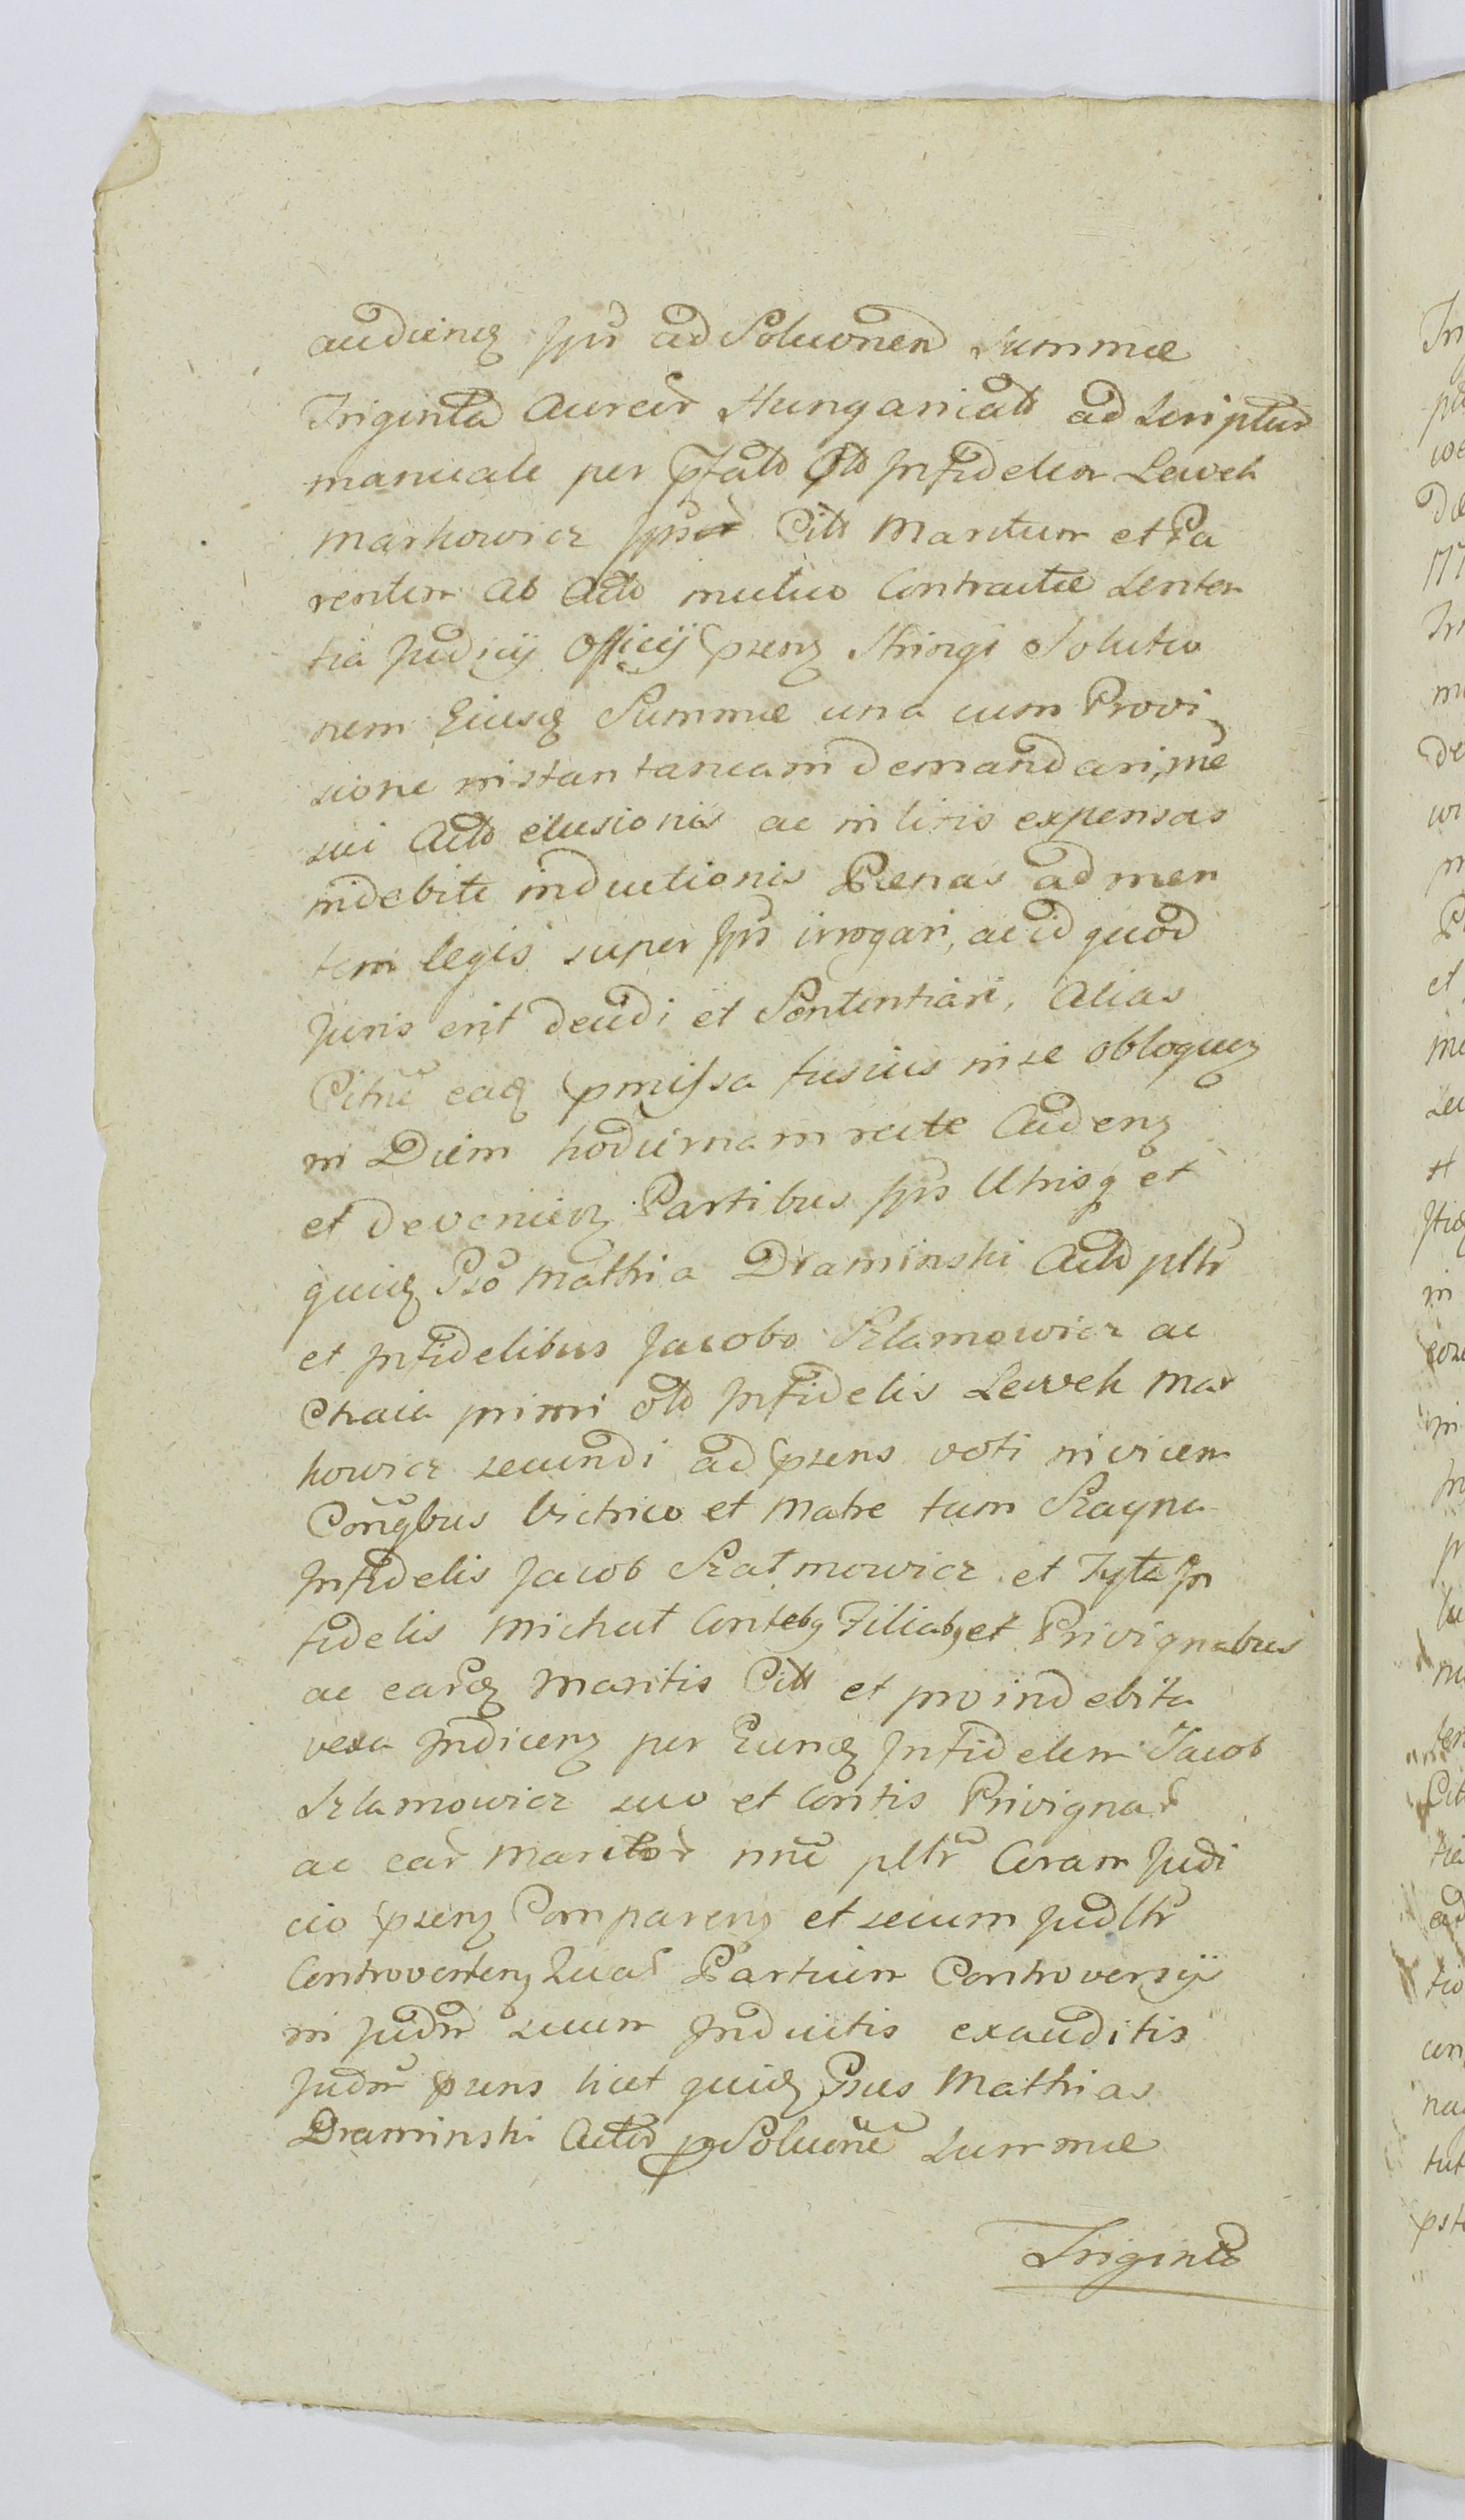 audienꝗ Ipũ ad Soluonen̄ Summæ
Triginta Aureor Hungaricalt ad Scriptur
manuale per pfalt olt Infidelem Lewek
Markowicz Ipsor Citt Maritum et Pa
rentem ab Acto mutuo Contractæ Senten
tia Judicij Officij pzenz Stringi Solutio
nem Eiusꝗ Summæ una cum Provi
sione instantaneam demandari, me
sui Acto elusionis ac in litis expensas
indebite inductionis Pœnas ad men
tem legis super Ipŝ irrogari, ac id quod
Juris erit decidi et Sententiari, Alias
Citñe eadꝗ pmissa fusius in se obloquenz
in Diem hodiernam recte Cadenz
et devenienz Partibus Ipŝ Utrisqꝫ et
quidꝗ Gso Mathia Draminski Acto pltr̃
et Infidelibus Jacobo Szlamowicz ac
Chaia primi olt Infidelis Lewek Mar
kowicz secundi ad pzens voti invicem
Conũgbus Victrico et Matre tum Szayna
Infidelis Jacob Szatmowicz et Tyta In
fidelis Michał Contebꝫ Filiabꝫ et Privignabus
ac earꝗ Maritis Citt et pro indebita
vexa Indicenz per Eundꝗ Infidelem Jacob
Szlamowicz suo et Contis Privignar
ac ear̃ Maritor nñe pltr̃ Coram Judi
cio pzenz Comparenz et secum Judltr̃
Controvertenz Quar Partium Controversijs
in Judm̃ suum Inductis exauditis
Judm̃ pzens licet quidꝗ Gsus Mathias
Draminski Actor p Soluonẽ Summæ
Triginta